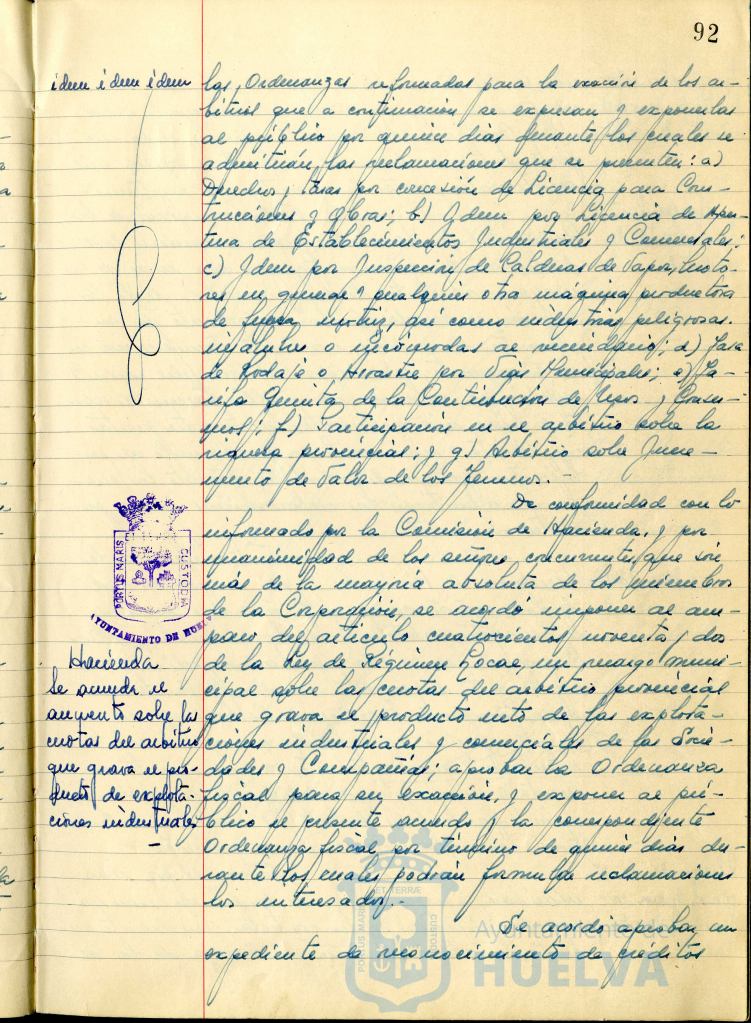 92
idem idem idem
las Ordenanzas reformadas para la exacción de los ar-
bitrios que a continuación se expresan y exponerlas
al público por quince días durante los cuales se
admitirán las reclamaciones que se presenten: a)
Derechos y tasas por concesión de Licencia para Cons-
trucciones y Obras; b) Idem por Licencia de Aper-
tura de Establecimientos Industriales y Comerciales;
c) Idem por Inspección de Calderas de Vapor, Moto-
res en general y cualquier otra máquina productora
de fuerza motriz, así como industrias peligrosas,
insalubres o incómodas al vecindario; d) Tasa
de Rodaje o Arrastre por Vías Municipales; e) Ta-
rifa Quinta de la Contribución de Usos y Consu-
mos; f) Participación en el arbitrio sobre la
riqueza provincial; y g) Arbitrio sobre Incre-
mento de Valor de los Terrenos.-
De conformidad con lo
informado por la Comisión de Hacienda, y por
unanimidad de los señores concurrentes que son
más de la mayoría absoluta de los miembros
de la Corporación, se acordó imponer al am-
paro del artículo cuatrocientos noventa y dos
de la Ley de Régimen Local, un recargo muni-
cipal sobre las cuotas del arbitrio provincial
que grava el producto neto de las explota-
ciones industriales y comerciales de las Socie-
dades y Compañías; aprobar la Ordenanza
fiscal para su exacción, y exponer al pú-
blico el presente acuerdo y la correspondiente
Ordenanza fiscal por término de quince días du-
rante los cuales podrán formular reclamaciones
los interesados.-
Se acordó aprobar un
expediente de reconocimiento de créditos
PORTUS MARIS
CUSTODIA
AYUNTAMIENTO DE HUELVA
Hacienda
Se acuerda el
aumento sobre las
cuotas del arbitrio
que grava el pro-
ducto de explota-
ciones industriales
PORTUS MARIS
ET TERRÆ
CUSTODIA
Ayuntamiento de
HUELVA